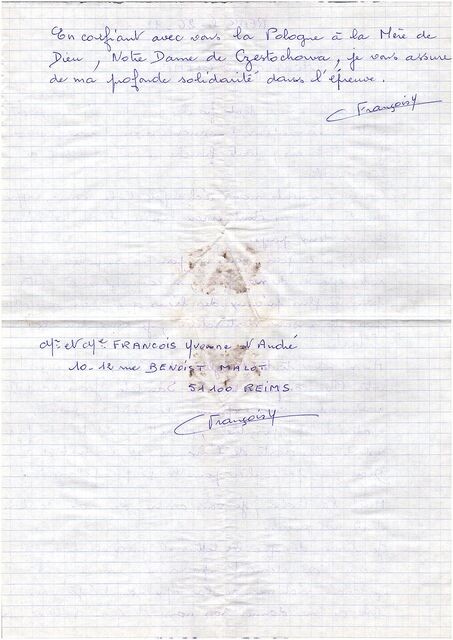 En confiant avec vous la Pologne à la Mère de
Dieu, Notre Dame de Częstochowa, je vous assure
de ma profonde solidarité dans l'épreuve.
François Y
Mr et Mme FRANÇOIS Yvonne et André
10-12 rue BENOIST MALOT
51100 REIMS
François Y